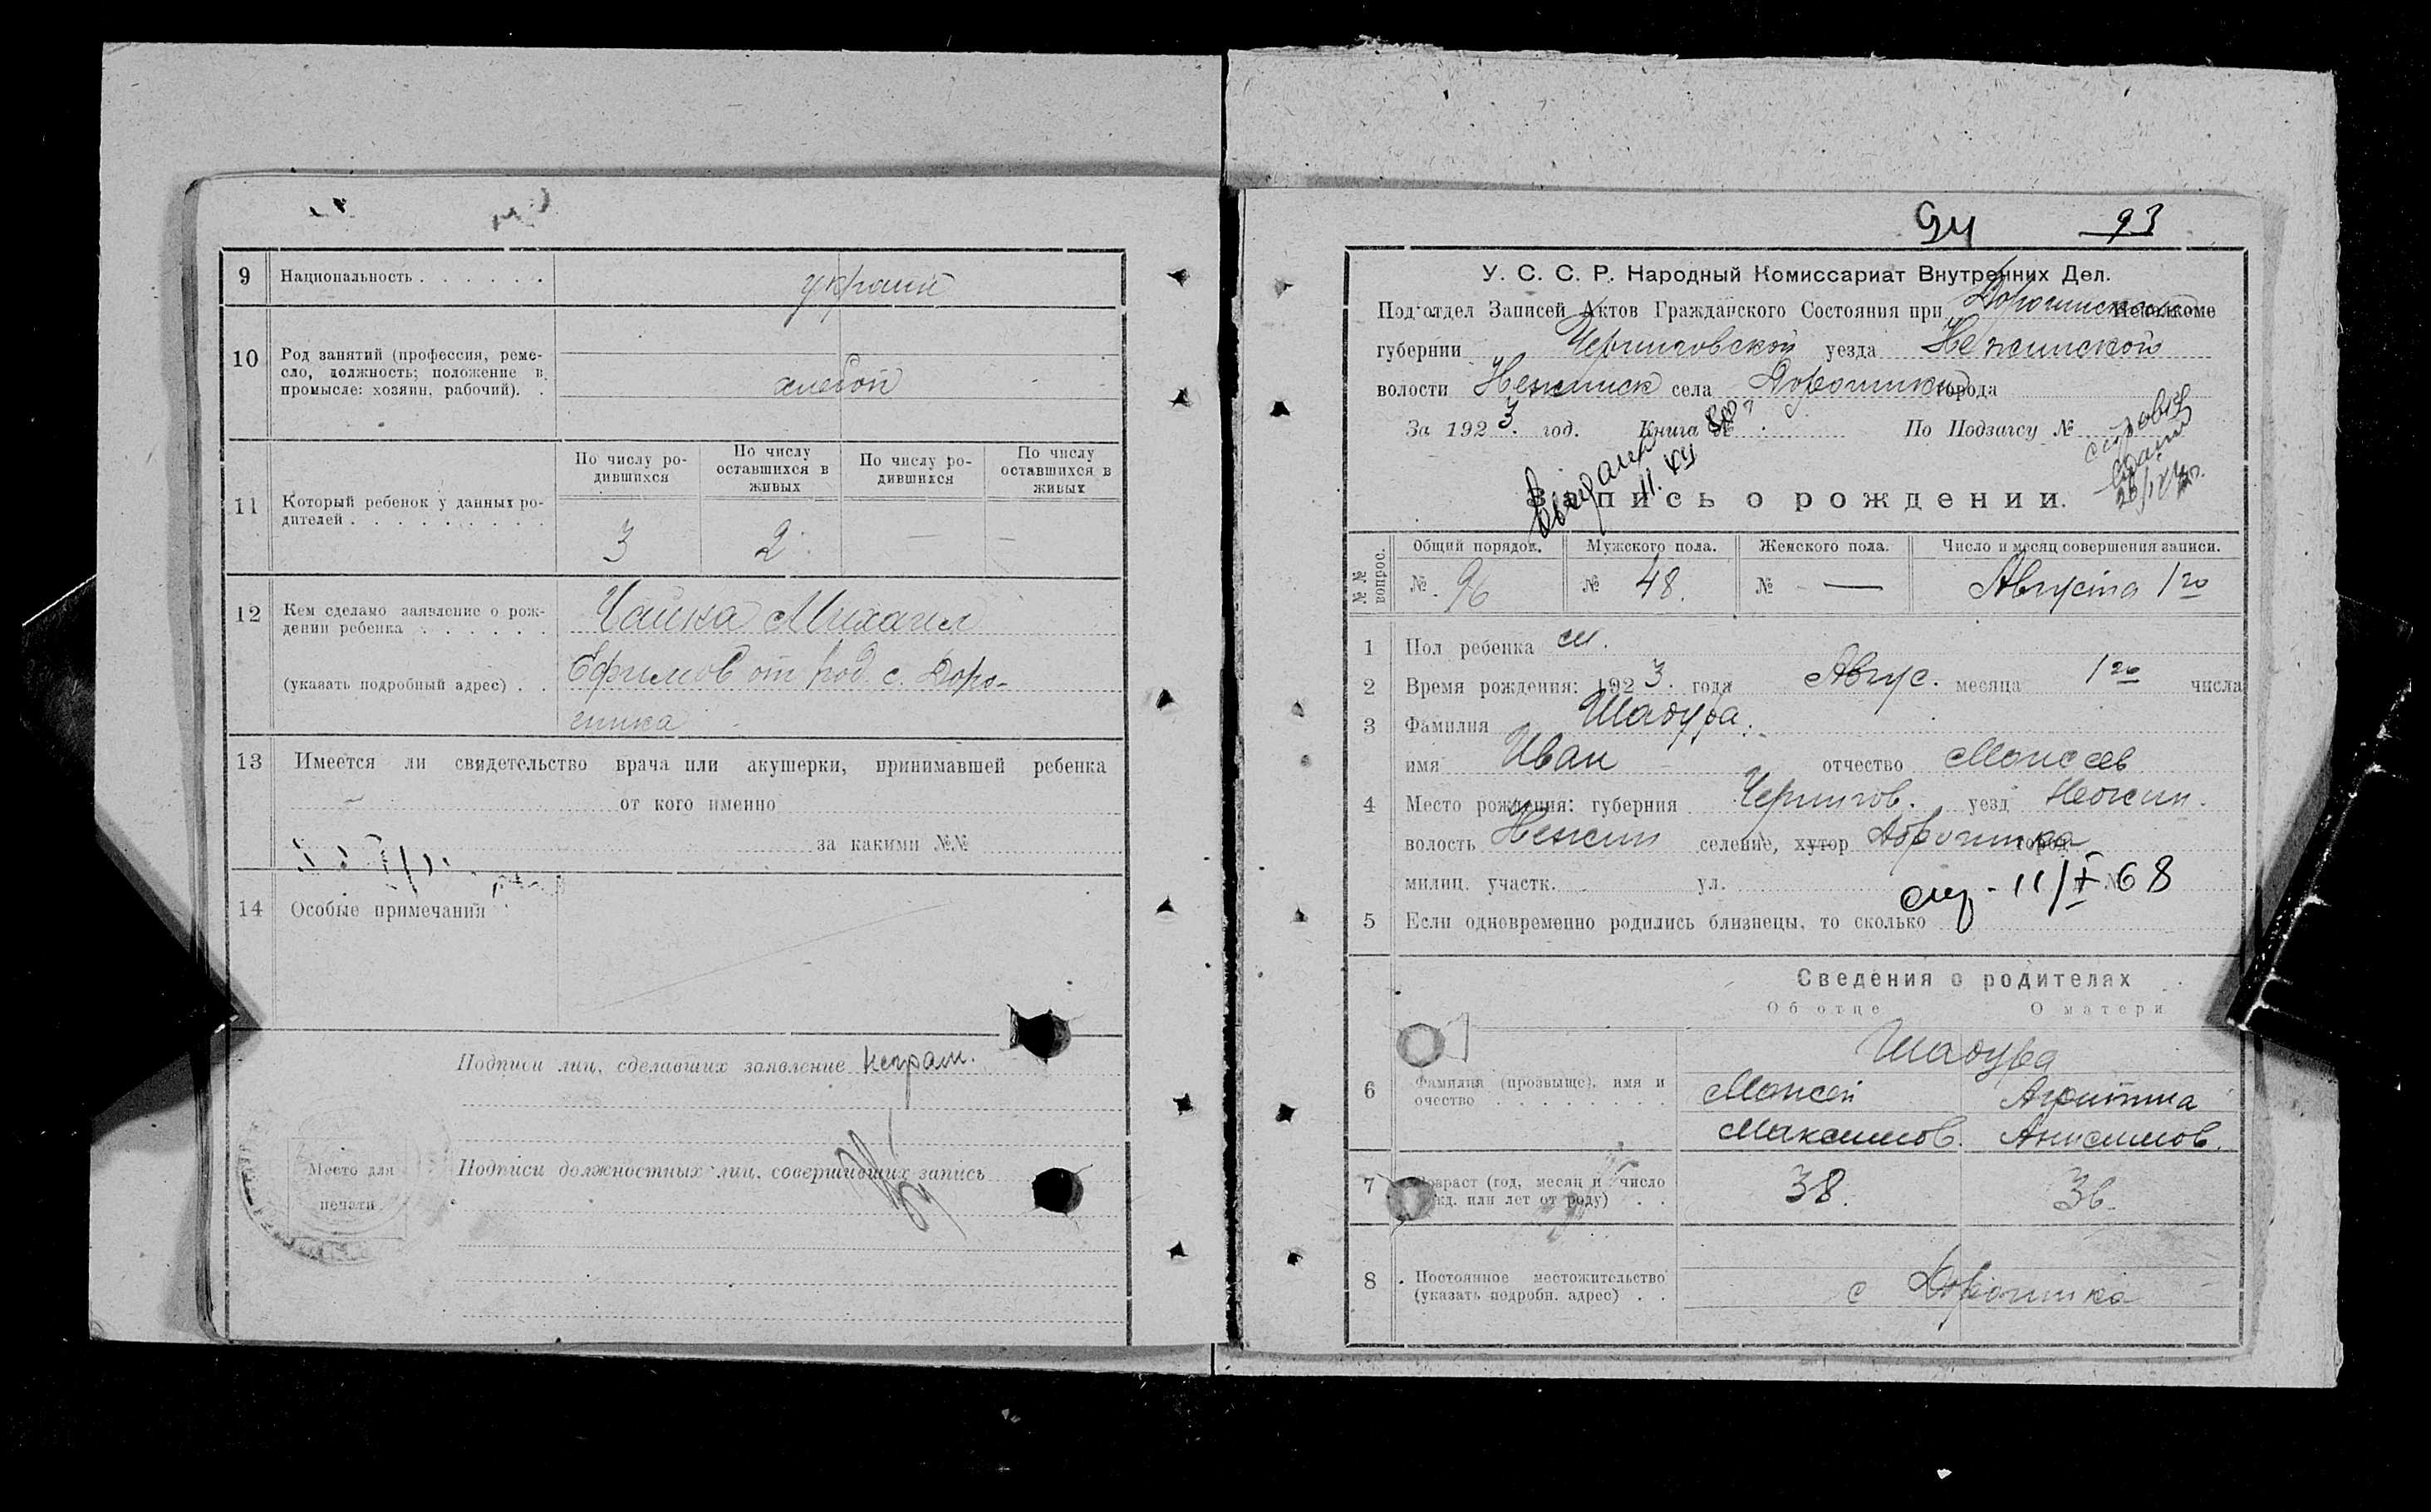 9 Национальность . . . . . . украин
10 Род занятий (профессия, реме-
сло, должность; положение в
промысле: хозяин, рабочий). . хлебоп
11 Который ребенок у данных ро-
дителей . . . . . . . . .
По числу ро-
дившихся
По числу
оставшихся в
живых
По числу ро-
дившихся
По числу
оставшихся в
живых
3 2 — —
12 Кем сделано заявление о рож-
дении ребенка . . . . . . Чайка Михаил
(указать подробный адрес) . . Ефимов от род. с. Доро-
гинка
13 Имеется ли свидетельство врача или акушерки, принимавшей ребенка
— от кого именно
за какими №№
14 Особые примечания
Подписи лиц, сделавших заявление неграм.
Место для
печати
Подписи должностных лиц, совершивших запись
94 93
У. С. С. Р. Народный Комиссариат Внутренних Дел.
Под'отдел Записей Актов Гражданского Состояния при Исполкоме
губернии Черниговской уезда Нежинской
волости Нежинск села города
За 1923. год. Книга № По Подзагсу №
Запись о рождении.
№№ вопрос.
Общий порядок. Мужского пола. Женского пола. Число и месяц совершения записи.
№ 96 № 48. № — Августа 1го
1 Пол ребенка м.
2 Время рождения: 1923. года Авгус. месяца 1го числа
3 Фамилия Шадура.
имя Иван отчество Моисеев
4 Место рождения: губерния Чернигов. уезд Нежин.
волость Нежин селение, хутор Дорогинка город
милиц. участк. ул. №
11/X 68
5 Если одновременно родились близнецы, то сколько
Сведения о родителях
Об отце О матери
Шадура
6 Фамилия (прозвыще), имя и
очество . . . . . . . .
Моисей
Максимов. Анисимов.
7 Возраст (год, месяц и число
рожд. или лет от роду) . . 38. 36.
8 Постоянное местожительство
(указать подробн. адрес) . . с Дорогинка